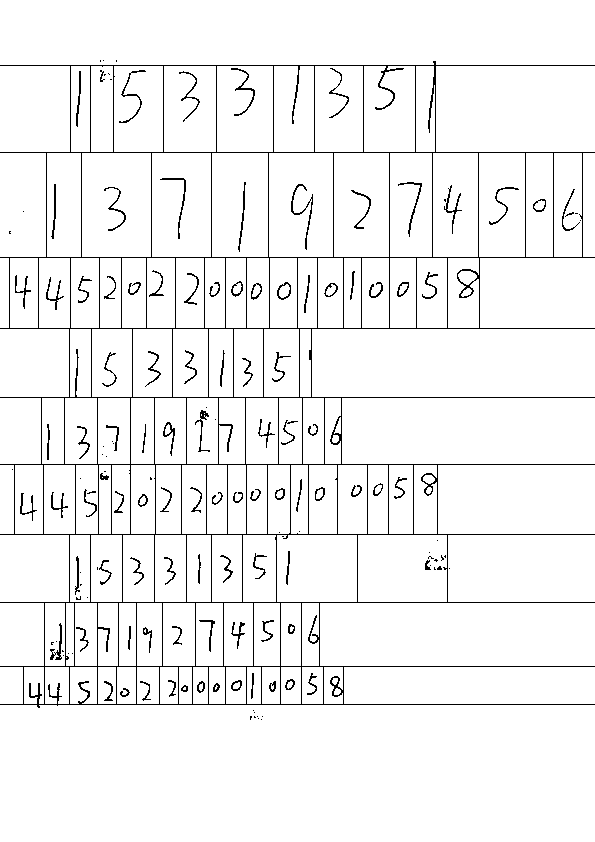 15331351
13719274506
445202200001010058
15331351
13719274506
44520220000100058
15331351
13719274506
4452022000010058